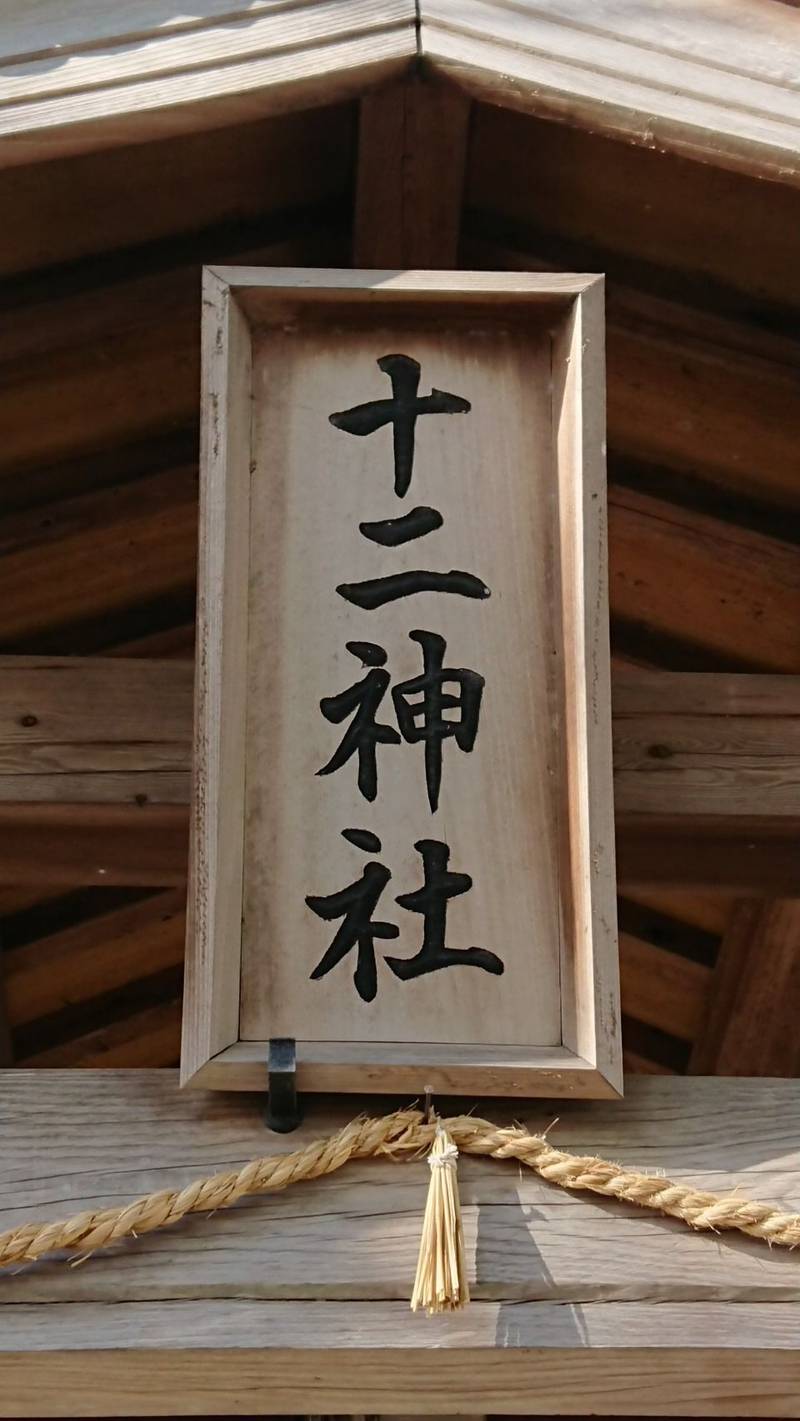 十二神社